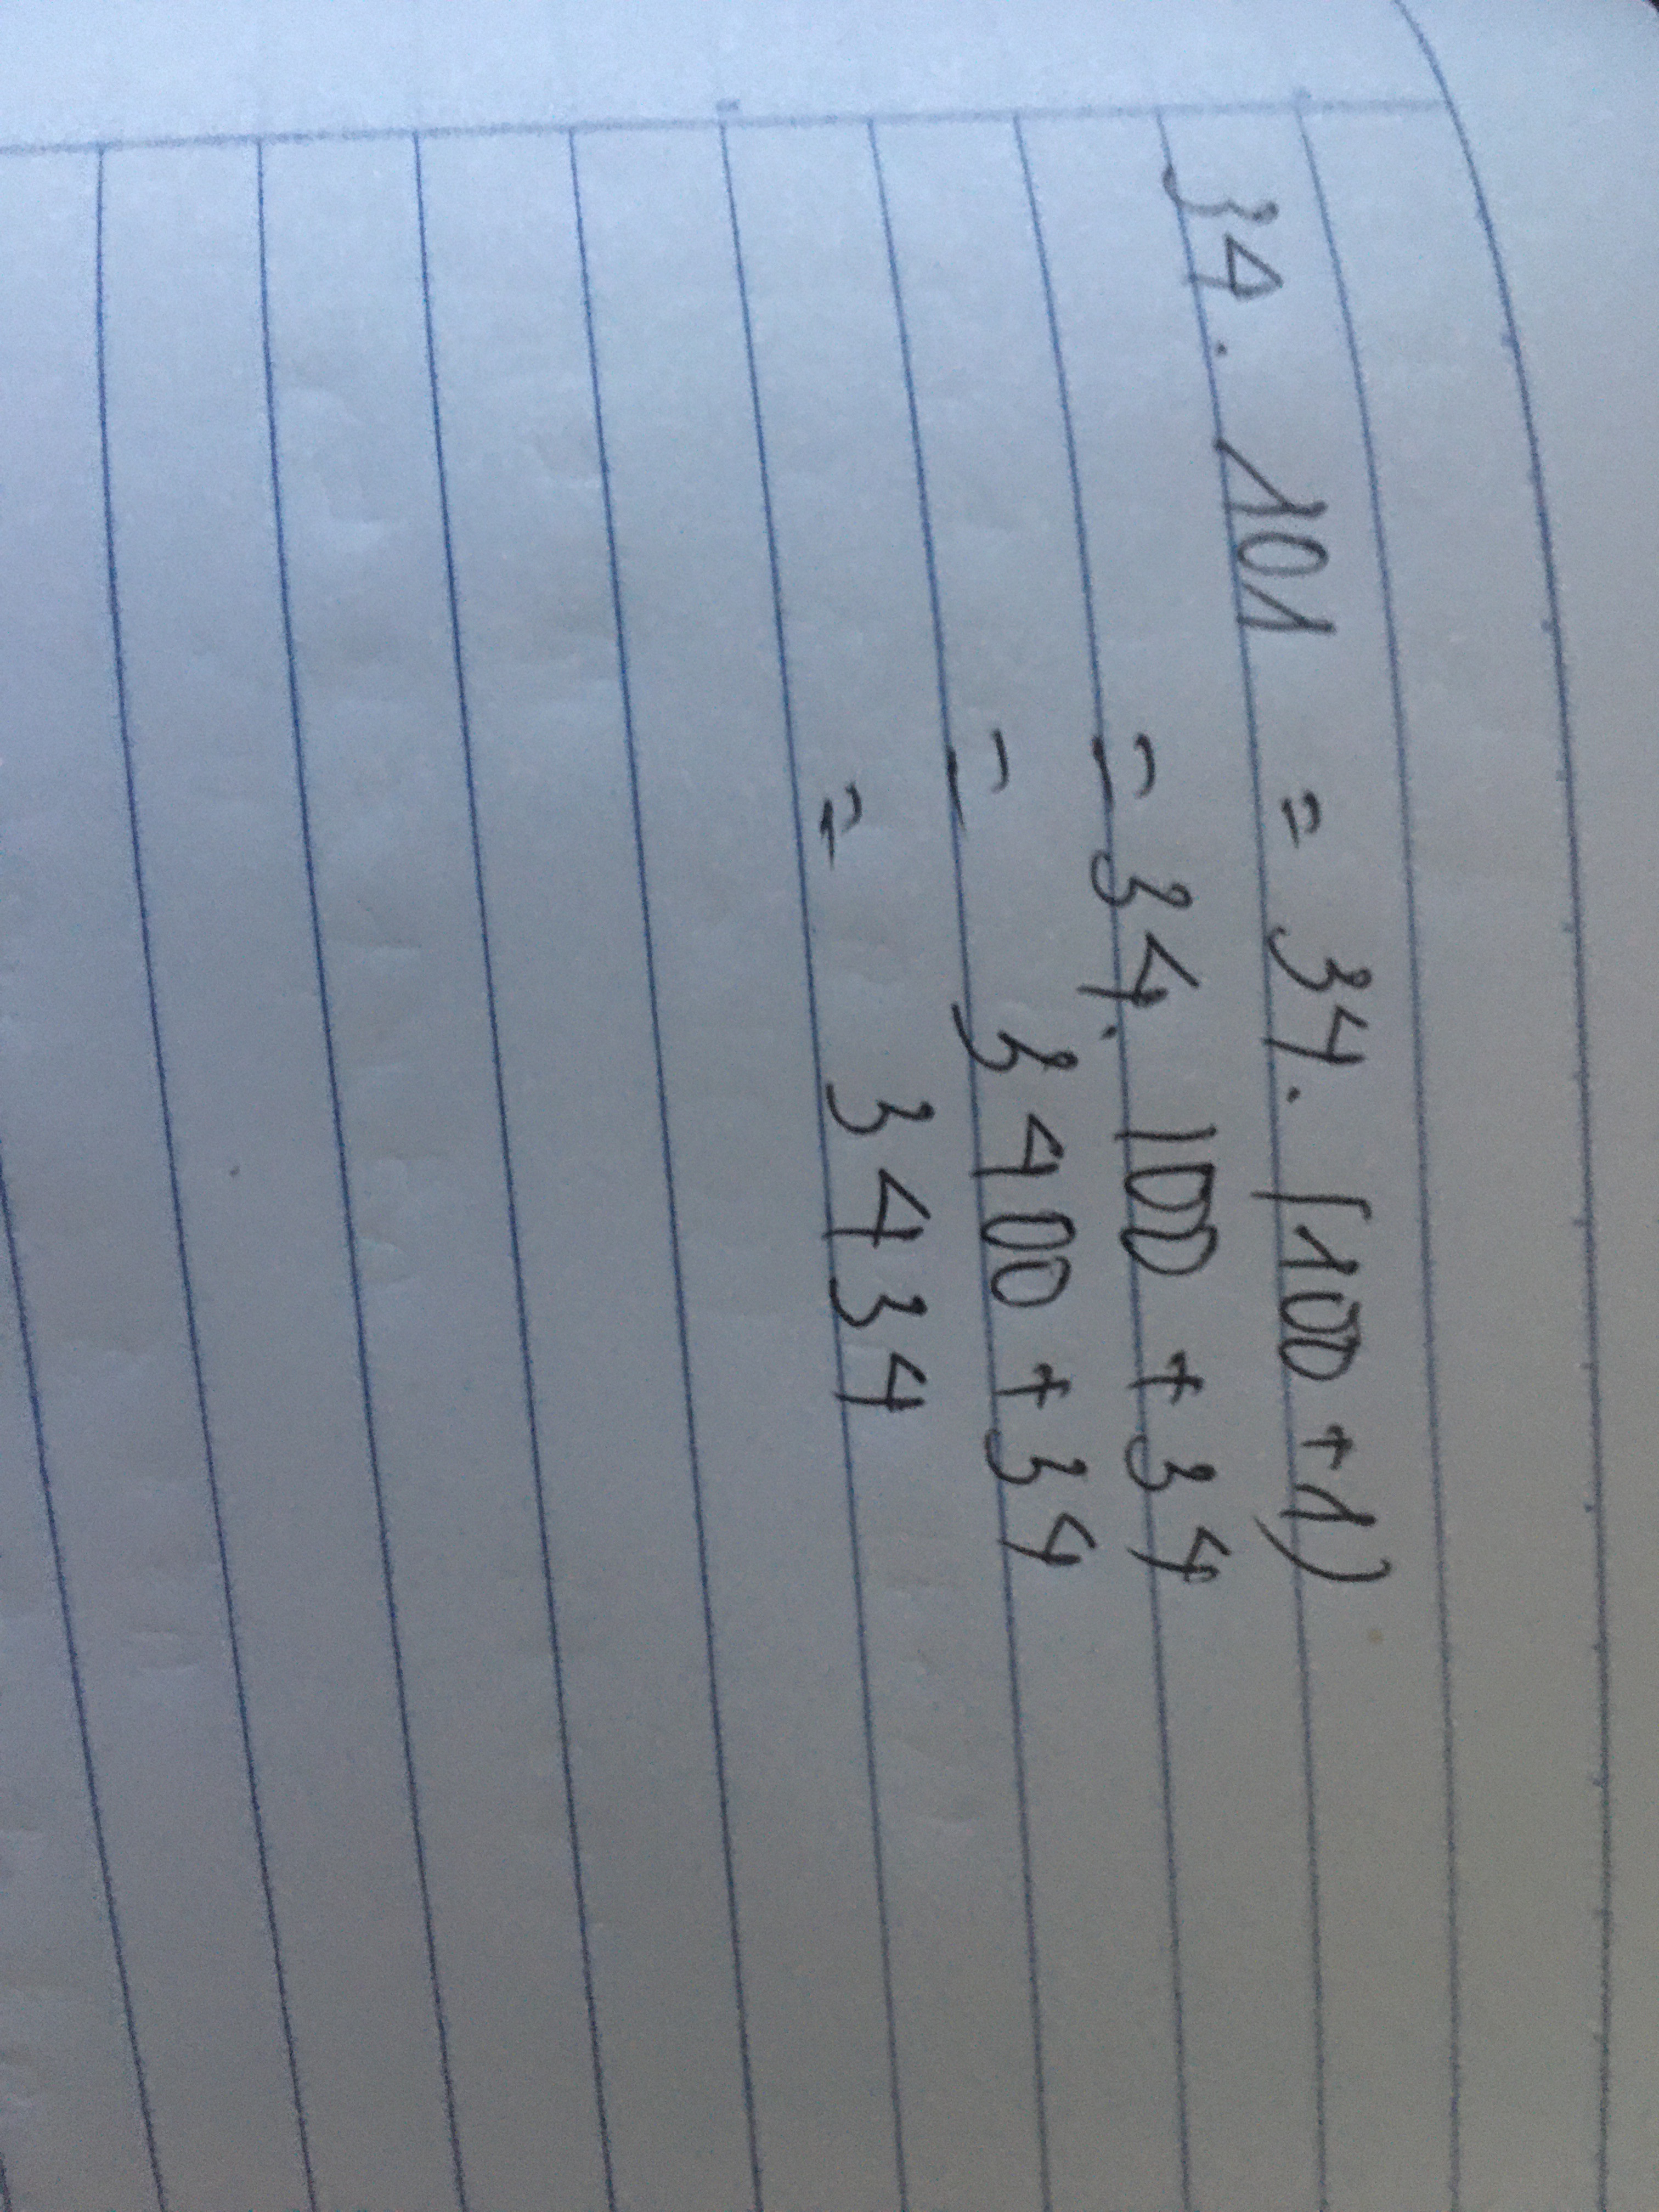 34. 101 = 34. (100 + 1)
= 34. 100 + 34
= 3400 + 34
= 3434